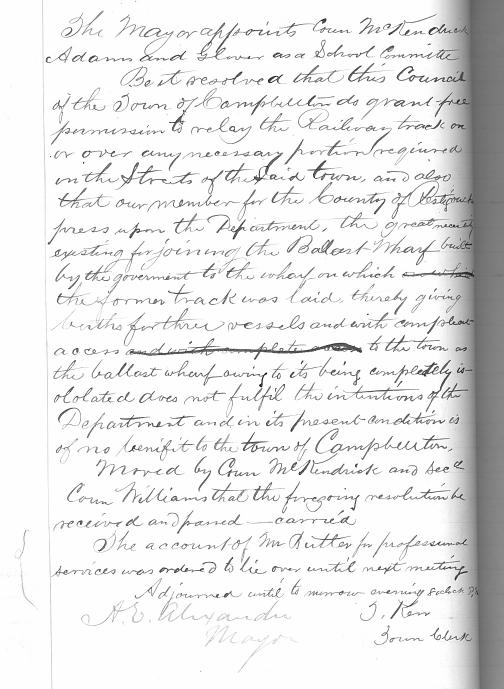 The Mayor appoints Coun McKendrick
Adams and Glover as a School Committe
Be it resolved that this Council
of the Town of Campbellton do grant free
permission to relay the Railway track on
or over any necessary portion required
in the Streets of the Said town, and also
that our member for the County of Restigouche
press upon the Department, the great necessity
existing for joining the Ballast Wharf built
by the goverment to the wharf on which
the former track was laid, thereby giving
births for three vessels and with compleat
access and with complete access to the town as
the ballast wharf owing to its being completely is-
ololated does not fulfil the intentions of the
Department and in its present condition is
of no benifit to the town of Campbellton.
Moved by Coun McKendrick and Secd
Coun Williams that the foregoing resolution be
received and passed — carried
The account of Mr Rutter for professional
services was ordered to lie over until next meeting
Adjourned until to morrow evening 8 oclock
A. E. Alexander T. Kerr
Mayor Town Clerk